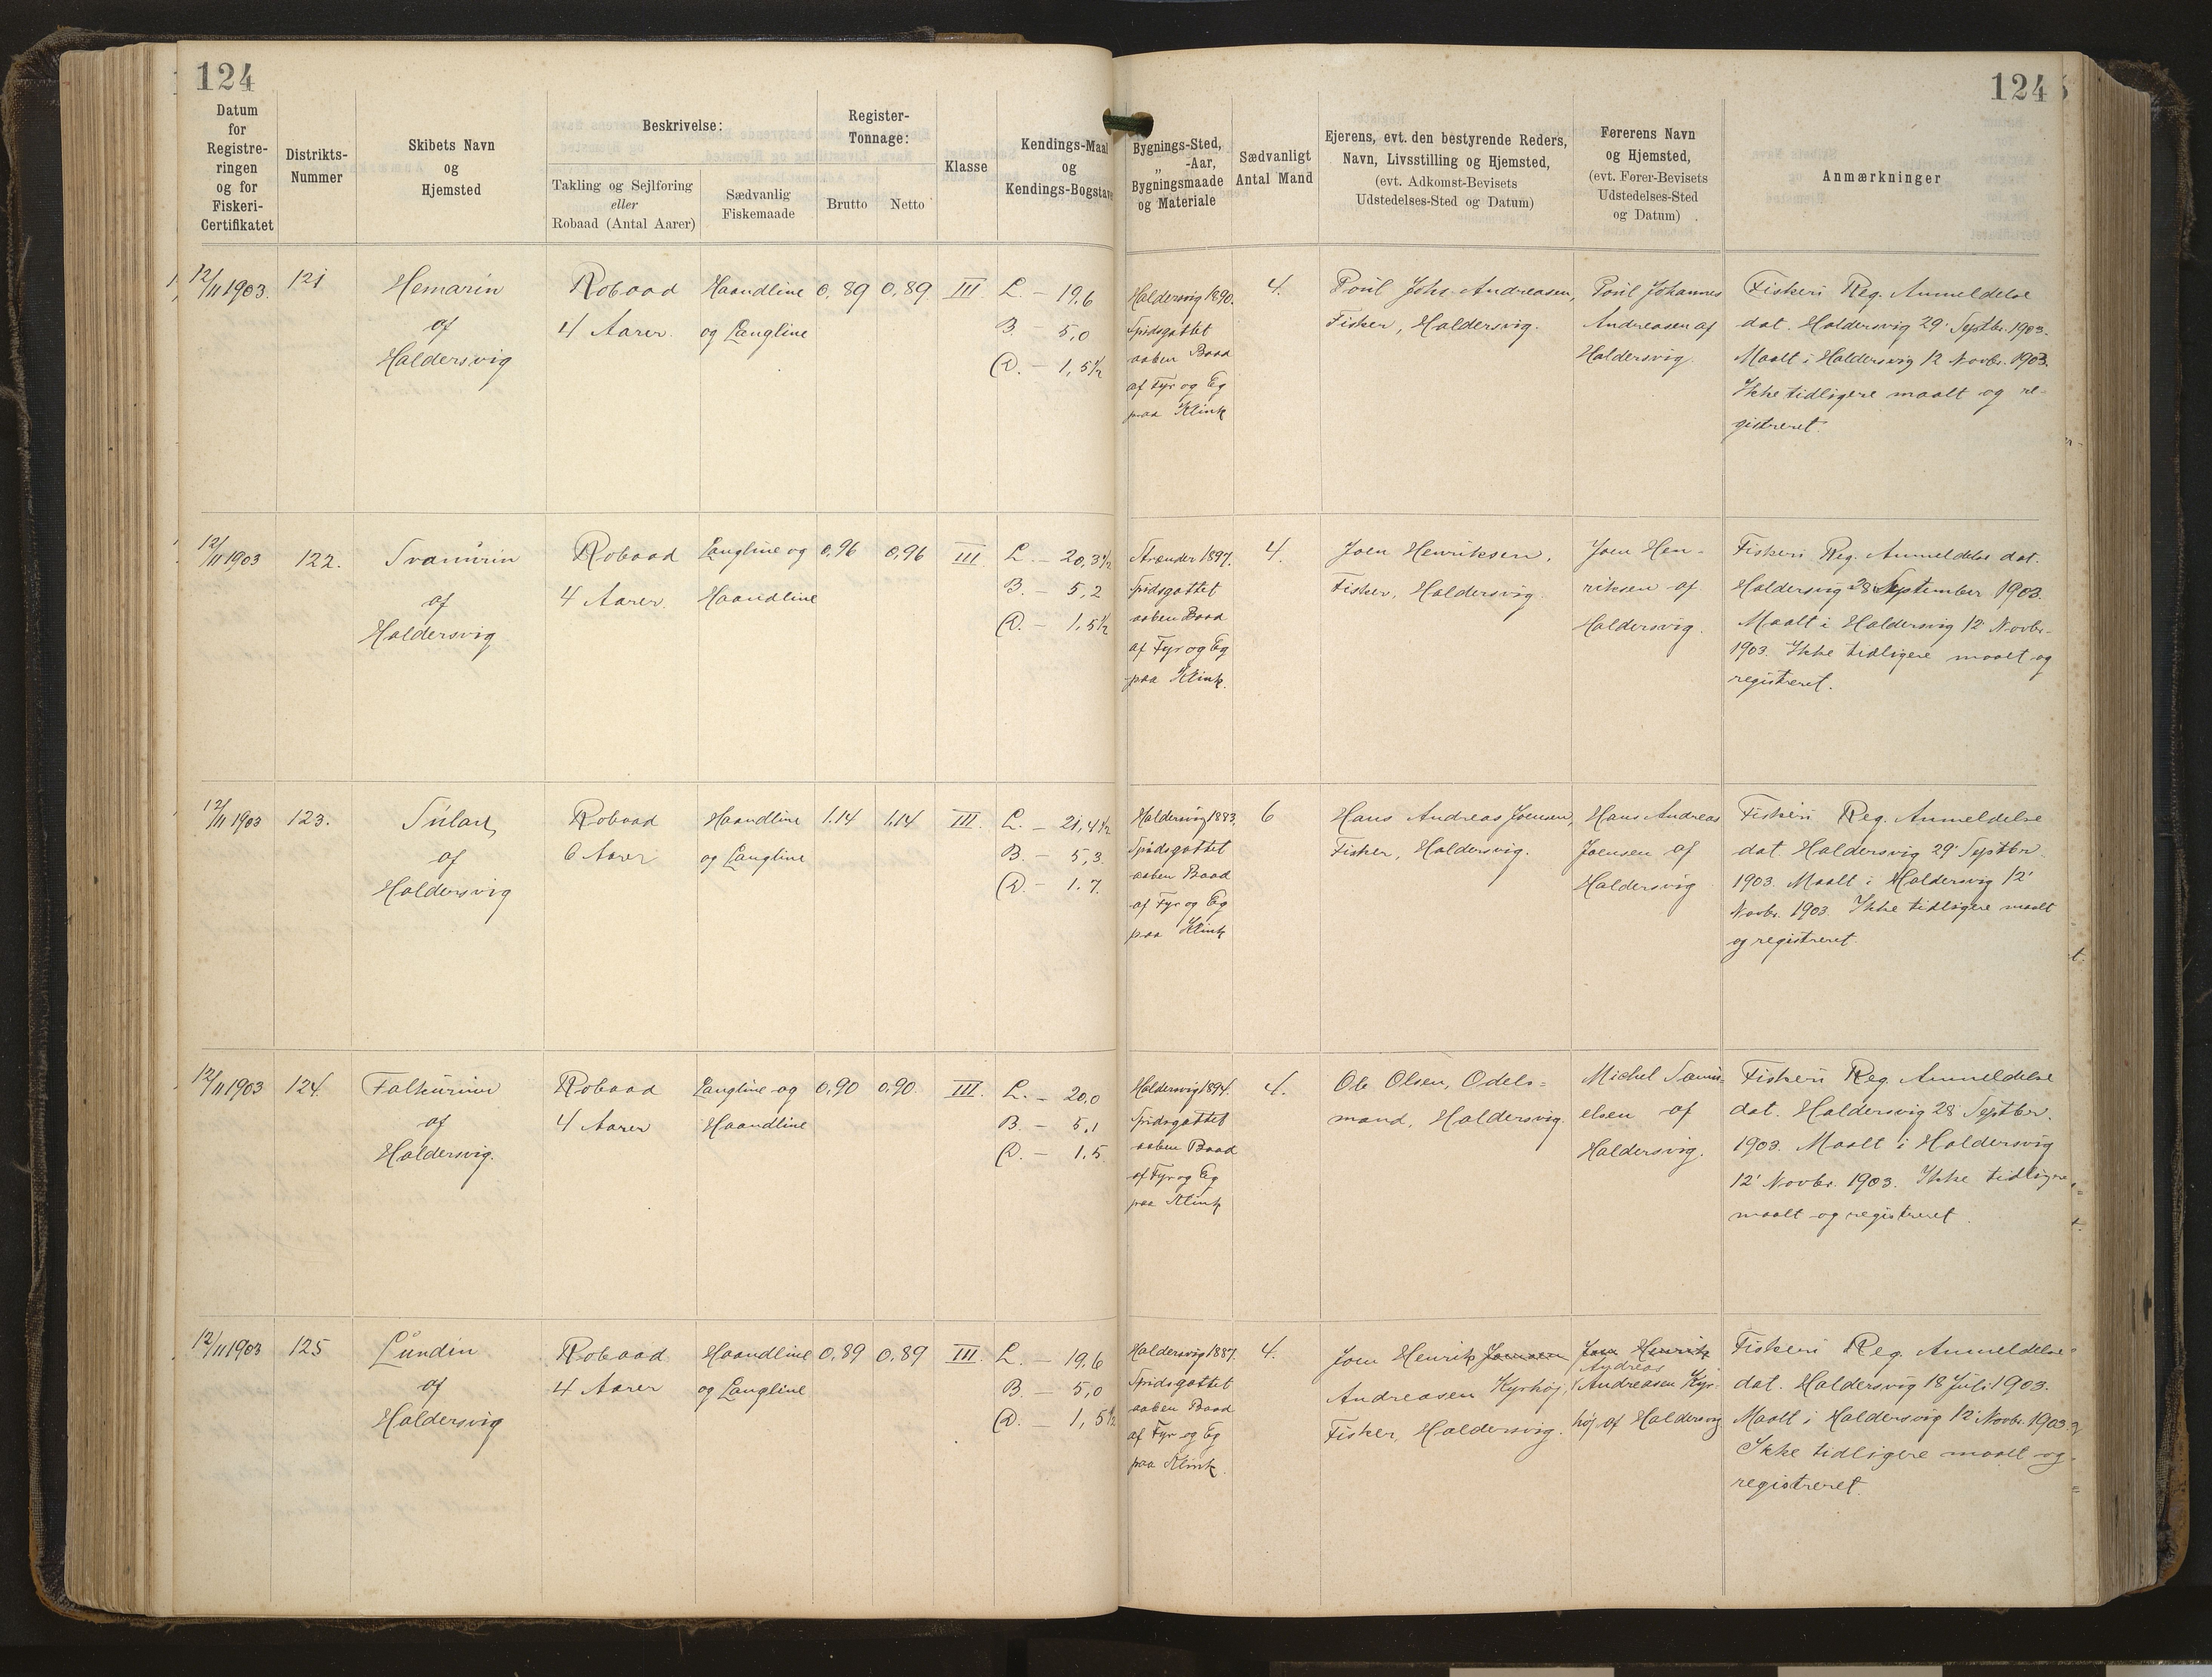 124
124
Datum
for
Registre-
ringen
og for
Fiskeri-
Certifikatet
Distrikts-
Nummer
Skibets Navn
og
Hjemsted
Beskrivelse:
Takling og Sejlføring
eller
Robaad (Antal Aarer)
Sædvanlig
Fiskemaade
Register-
Tonnage:
Brutto
Netto
Klasse
Kendings-Maal
og
Kendings-Bogstave
Bygnings-Sted,
„ -Aar,
Bygningsmaade
og Materiale
Sædvanligt
Antal Mand
Ejerens, evt. den bestyrende Reders,
Navn, Livsstilling og Hjemsted,
(evt. Adkomst-Bevisets
Udstedelses-Sted og Datum)
Førerens Navn
og Hjemsted,
(evt. Fører-Bevisets
Udstedelses-Sted
og Datum)
Anmærkninger
12/11 1903.
121
Hemarin
af
Haldersvig
Robaad
4 Aarer.
Haandline
og Langline
0,89
0,89
III
L. – 19,6
B. – 5,0
D. – 1,5½
Haldersvig 1890.
Spidsgattet
aaben Baad
af Fyr og Eg
paa Klink
4.
Poul Johs. Andreasen,
Fisker, Haldersvig.
Poul Johannes
Andreasen af
Haldersvig.
Fiskeri Reg. Anmeldelse
dat. Haldersvig 29' Septbr. 1903.
Maalt i Haldersvig 12 Novbr. 1903.
Ikke tidligere maalt og re-
gistreret.
12/11 1903
122.
Svanurin
af
Haldersvig
Robaad
4 Aarer.
Langline og
Haandline
0,96
0,96
III
L. – 20,3½
B. – 5,2
D. – 1,5½
Strænder 1897.
Spidsgattet
aaben Baad
af Fyr og Eg
paa Klink.
4.
Joen Henriksen,
Fisker, Haldersvig.
Joen Hen-
riksen af
Haldersvig.
Fiskeri Reg. Anmeldelse dat.
Haldersvig 28' September 1903.
Maalt i Haldersvig 12' Novbr.
1903. Ikke tidligere maalt og
registreret.
12/11 1903
123.
Sulan
af
Haldersvig
Robaad
6 Aarer
Haandline
og Langline
1.14
1,14
III.
L. – 21,4½
B. – 5,3
D. – 1.7.
Haldersvig 1883.
Spidsgattet
aaben Baad
af Fyr og Eg
paa Klink
6
Hans Andreas Joensen,
Fisker, Haldersvig.
Hans Andreas
Joensen af
Haldersvig
Fiskeri Reg. Anmeldelse
dat. Haldersvig 29' Septbr.
1903. Maalt i Haldersvig 12'
Novbr. 1903. Ikke tidligere maalt
og registreret.
12/11 1903
124.
Falkurinn
af
Haldersvig.
Robaad
4 Aarer
Langline og
Haandline
0,90
0,90.
III.
L. – 20,0
B. – 5,1
D. – 1.5
Haldersvig 1894.
Spidsgattet
aaben Baad
af Fyr og Eg
paa Klink
4.
Ole Olsen, Odels=
mand, Haldersvig.
Michel Samu=
elsen af
Haldersvig.
Fiskeri Reg. Anmeldelse
dat. Haldersvig 28' Septbr.
1903. Maalt i Haldersvig
12' Novbr. 1903. Ikke tidligere
maalt og registreret.
12/11 1903
125
Lundin
af
Haldersvig
Robaad
4 Aarer
Haandline
og Langline
0,89
0,89
III.
L. – 19,6
B. – 5,0
D. – 1,5½
Haldersvig 1887.
Spidsgattet
aaben Baad
af Fyr og Eg
paa Klink.
4.
Joen Henrik Joensen
Andreasen Kyrhøj,
Fisker, Haldersvig.
Joen Henrik
Andreas
Andreasen Kyr-
høj af Haldersvig
Fiskeri Reg. Anmeldelse
dat. Haldersvig 18 Juli 1903.
Maalt i Haldersvig 12' Novbr. 1903.
Ikke tidligere maalt og
registreret.